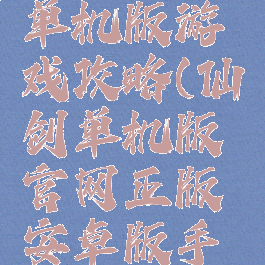 单机版游
戏攻略(仙
剑单机版
官网正版
安卓版手